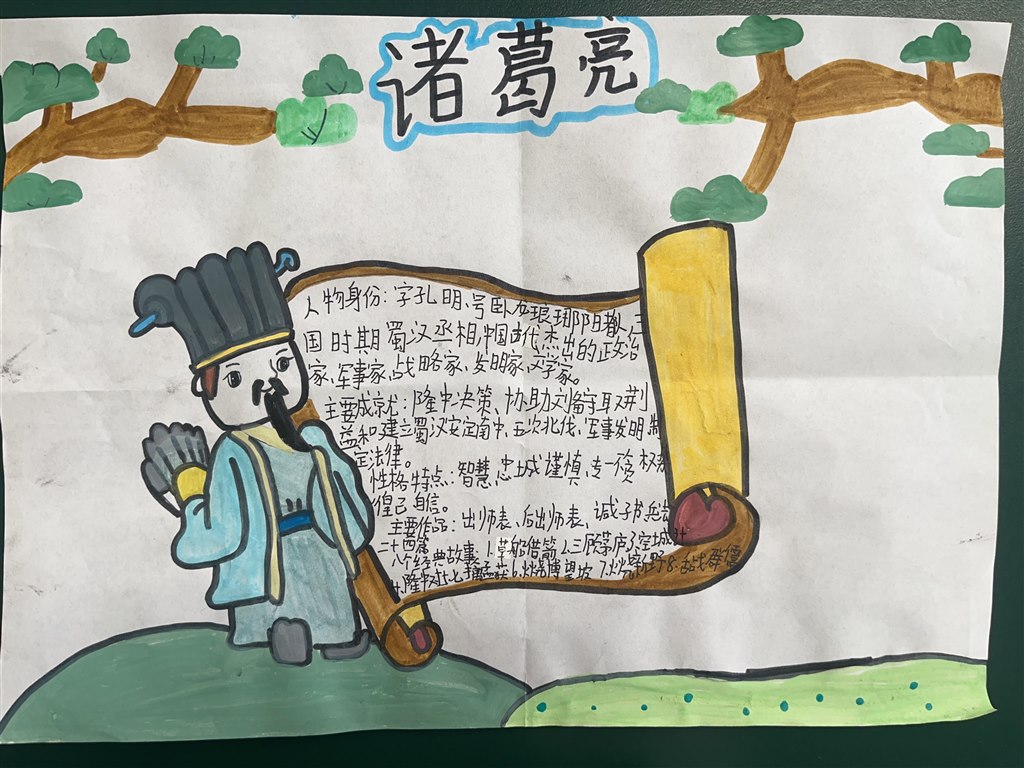 诸葛亮
人物身份:字孔明、号卧龙琅琊阳都人三
国时期蜀汉丞相,中国古代杰出的政治
家、军事家、战略家、发明家、文学家。
主要成就:隆中决策、协助刘备夺取荆
益和建立蜀汉安定南中、五次北伐、军事发明制
定法律。
性格特点:智慧,忠诚谨慎,专一
自信。
主要作品:出师表、后出师表、诫子书
二十四篇
八个经典故事:1.草船借箭2.三顾茅庐3.空城计
4.隆中对5.七擒孟获6.火烧博望坡7.火烧新野8.舌战群儒